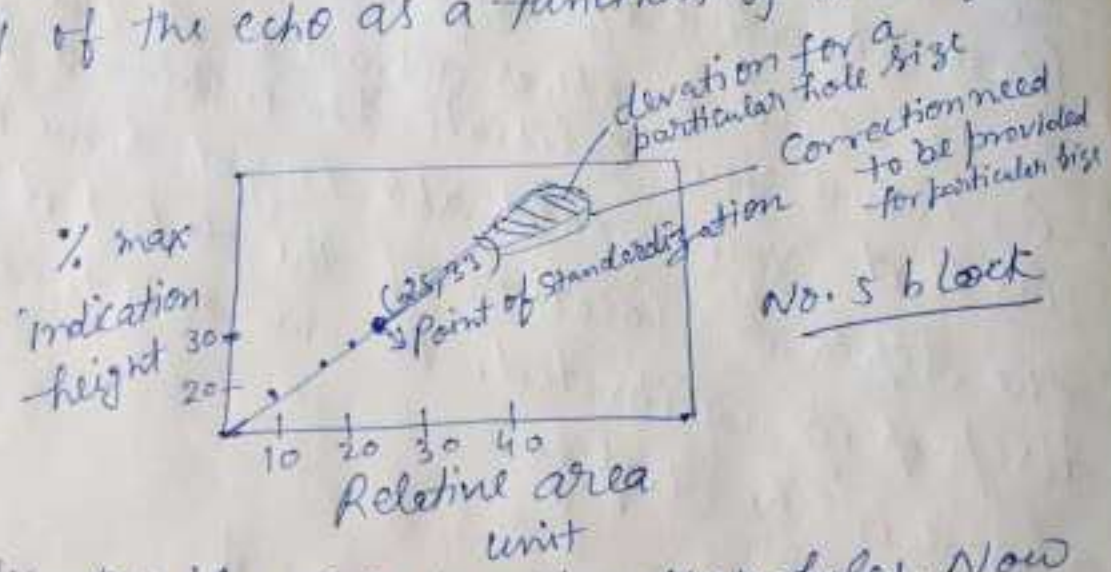 of the echo as a function of
deviation for a
particular hole size
Correction need
to be provided
for particular size
% max
indication
height
30
20
(25,33)
Point of standardization
No. 5 block
10 20 30 40
Relative area
unit
Now